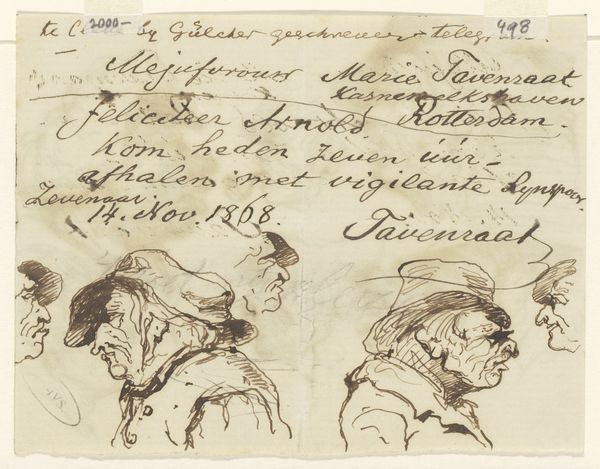 2000-
498
te Cleve by Gülcher geschreven telegr
Mejufvrouw Marie Tavenraat
Karnemelkshaven
feliciteer Arnold Rotterdam.
Kom heden zeven úúr-
afhalen met vigilante Rynspoor.
Zevenaar
14. Nov. 1868.
Tavenraat